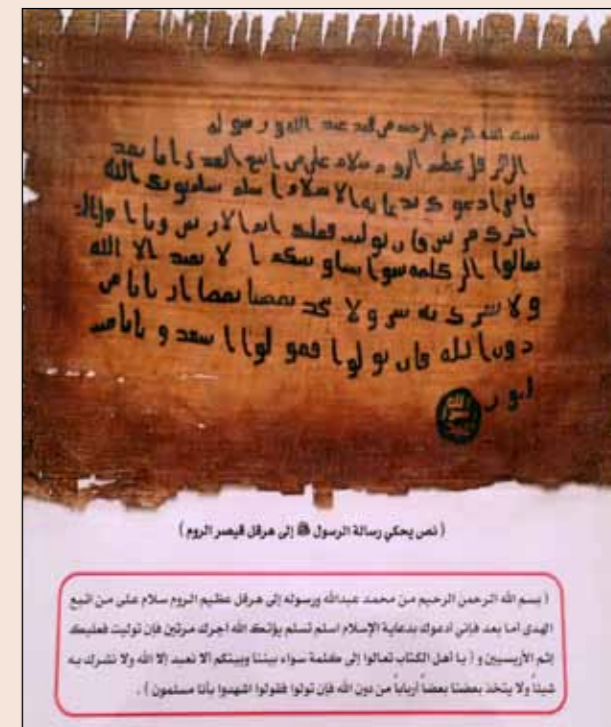 بسم الله الرحمن الرحيم من محمد عبد الله و رسوله
الى هرقل عظيم الروم سلام على من اتبع الهدى اما بعد
فاني ادعوك بدعاية الاسلام اسلم تسلم يوتك الله
اجرك مرتين فان توليت فعليك اثم الاريسين ويا اهل
تعالوا الى كلمة سوا بيننا وبينكم الا نعبد الا الله
ولا نشرك به ولا يتخذ بعضنا بعضا اربابا من
دون الله فان تولوا فقولوا اشهدوا بانا مسـ
لمون
( نص يحكي رسالة الرسول ﷺ إلى هرقل قيصر الروم )
( بسم الله الرحمن الرحيم من محمد عبدالله ورسوله إلى هرقل عظيم الروم سلام على من اتبع
الهدى أما بعد فإني أدعوك بدعاية الإسلام اسلم تسلم يؤتك الله أجرك مرتين فإن توليت فعليك
إثم الأريسيين و ( يا أهل الكتاب تعالوا إلى كلمة سواء بيننا وبينكم ألا نعبد إلا الله ولا نشرك به
شيئاً ولا يتخذ بعضنا بعضاً أرباباً من دون الله فإن تولوا فقولوا اشهدوا بأنا مسلمون ) .